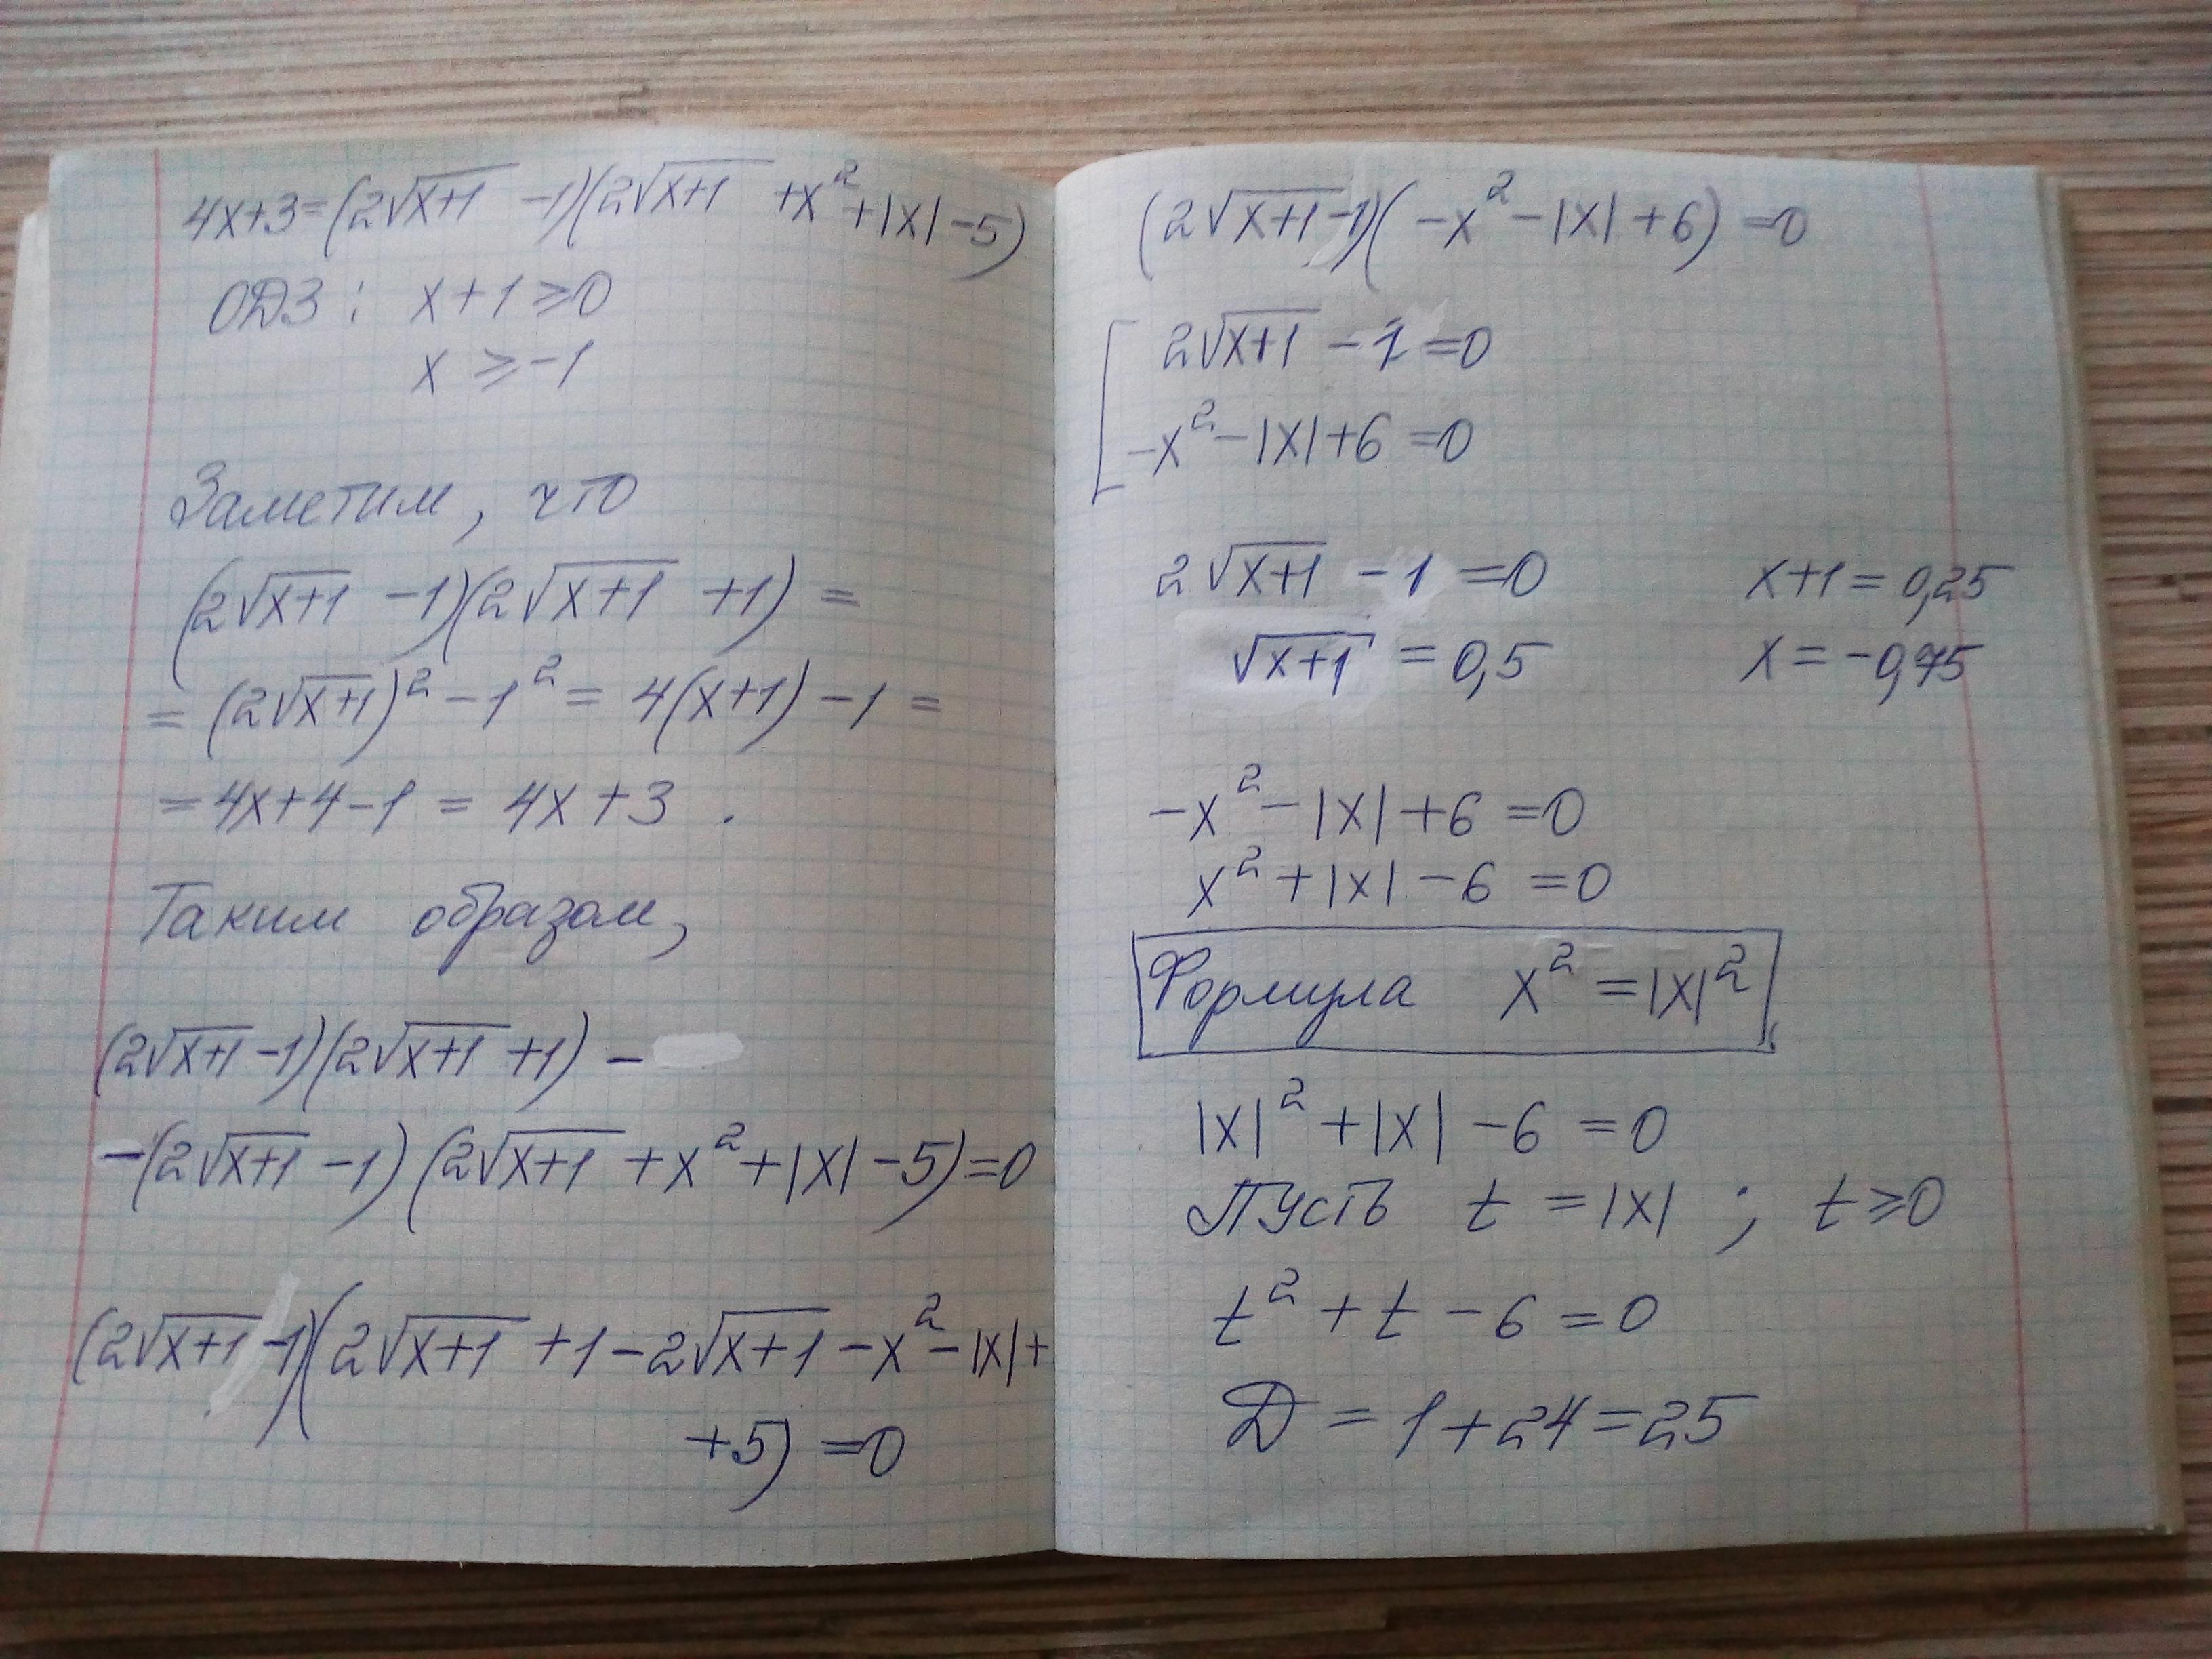 4x+3=(2√(x+1) -1)(2√(x+1) +x²+|x|-5)
ОДЗ: x+1≥0
x≥-1
Заметим, что
(2√(x+1) -1)(2√(x+1) +1)=
=(2√(x+1))²-1²=4(x+1)-1=
=4x+4-1=4x+3.
Таким образом,
(2√(x+1) -1)(2√(x+1) +1)-
-(2√(x+1) -1)(2√(x+1) +x²+|x|-5)=0
(2√(x+1) -1)(2√(x+1) +1-2√(x+1) -x²-|x|+
+5)=0
(2√(x+1) -1)(-x²-|x|+6)=0
[ 2√(x+1) -1=0
-x²-|x|+6=0
2√(x+1) -1=0 x+1=0,25
√(x+1) =0,5 x=-0,75
-x²-|x|+6=0
x²+|x|-6=0
Формула x²=|x|²
|x|²+|x|-6=0
Пусть t=|x|; t≥0
t²+t-6=0
Д=1+24=25